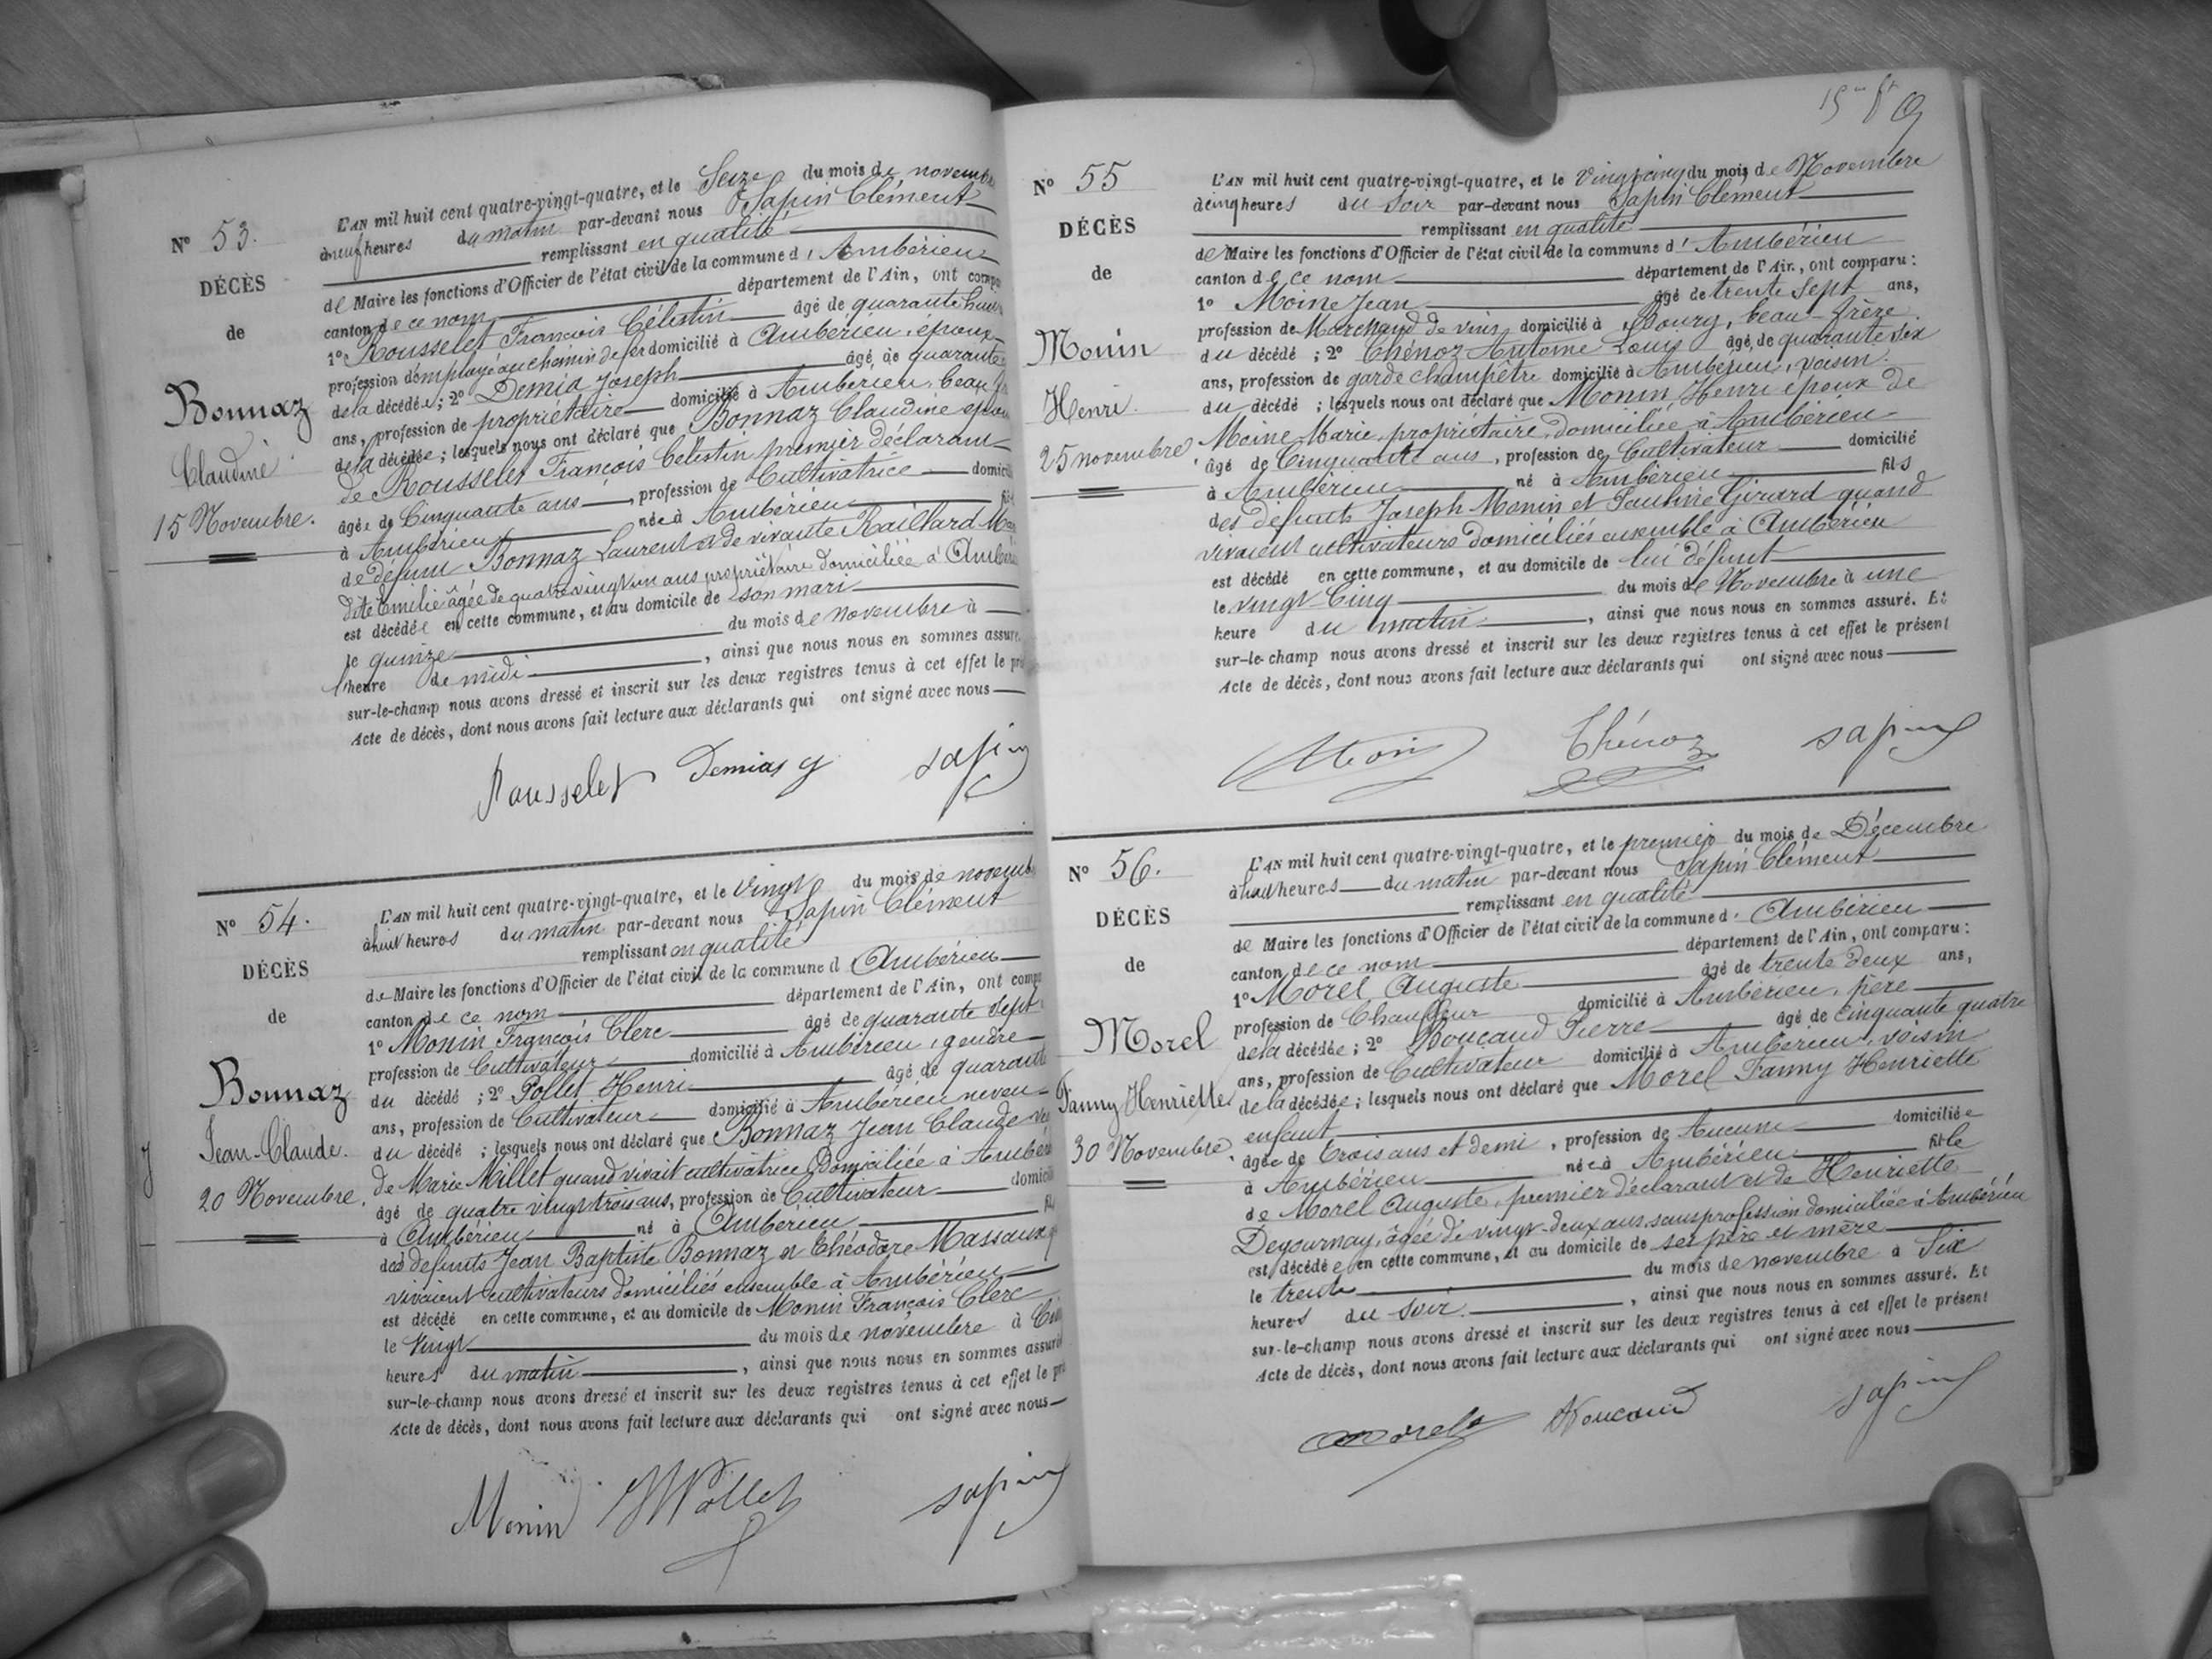 N° 53.
DÉCÈS
de
Bonnaz
Claudine
15 Novembre.
L'AN mil huit cent quatre-vingt-quatre, et le Seize du mois de novembre
à neuf heures du matin par-devant nous Sapin Clément
remplissant en qualité
de Maire les fonctions d'Officier de l'état civil de la commune d'Ambérieu
canton de ce nom département de l'Ain, ont compa
1° Rousselet François Célestin âgé de quarante huit
profession d'employé au chemin de fer domicilié à Ambérieu, époux
de la décédée; 2° Demia Joseph âgé de quarante
ans, profession de propriétaire domicilié à Ambérieu, beau
de la décédée; lesquels nous ont déclaré que Bonnaz Claudine épouse
de Rousselet François Célestin premier déclarant
âgée de Cinquante ans, profession de Cultivatrice domicil
à Ambérieu née à Ambérieu
de défunt Bonnaz Laurent et de vivante Raillard
dite Emilie âgée de quatre vingt un ans propriétaire domiciliée à Ambérieu
est décédée en cette commune, et au domicile de son mari
le quinze du mois de novembre à
l'heure de midi, ainsi que nous nous en sommes assuré.
sur-le-champ nous avons dressé et inscrit sur les deux registres tenus à cet effet le pré
Acte de décès, dont nous avons fait lecture aux déclarants qui ont signé avec nous
Rousselet Demias sapin
N° 54.
DÉCÈS
de
Bonnaz
Jean-Claude.
20 Novembre.
L'AN mil huit cent quatre-vingt-quatre, et le Vingt du mois de novemb
à huit heures du matin par-devant nous Sapin Clément
remplissant en qualité
de Maire les fonctions d'Officier de l'état civil de la commune d Ambérieu
canton de ce nom département de l'Ain, ont compa
1° Monin François Clerc âgé de quarante sept
profession de Cultivateur domicilié à Ambérieu, gendre
du décédé; 2° Pollet Henri âgé de quarante
ans, profession de Cultivateur domicilié à Ambérieu neveu
du décédé; lesquels nous ont déclaré que Bonnaz Jean Claude veu
de Marie Millet quand vivait cultivatrice Domiciliée à Ambér
âgé de quatre vingt trois ans, profession de Cultivateur domicili
à Ambérieu né à Ambérieu fil
des défunts Jean Baptiste Bonnaz et Théodore Massaux q
vivaient cultivateurs domiciliés ensemble à Ambérieu
est décédé en cette commune, et au domicile de Monin François Clerc
le Vingt du mois de novembre à
heures du matin, ainsi que nous nous en sommes assuré
sur-le-champ nous avons dressé et inscrit sur les deux registres tenus à cet effet le pré
Acte de décès, dont nous avons fait lecture aux déclarants qui ont signé avec nous
Monin Pollet sapin
N° 55
DÉCÈS
de
Monin
Henri.
25 novembre.
L'AN mil huit cent quatre-vingt-quatre, et le vingt cinq du mois de Novembre
à cinq heures du soir par-devant nous Sapin Clément
remplissant en qualité
de Maire les fonctions d'Officier de l'état civil de la commune d'Ambérieu
canton de ce nom département de l'Ain, ont comparu:
1° Moine Jean âgé de trente sept ans,
profession de Marchand de vins domicilié à Bourg, beau-frère
du décédé; 2° Chénoz Antoine Louis âgé de quarante six
ans, profession de garde champêtre domicilié à Ambérieu, voisin
du décédé; lesquels nous ont déclaré que Monin Henri époux de
Moine Marie, propriétaire, domiciliée à Ambérieu
âgé de Cinquante ans, profession de Cultivateur domicilié
à Ambérieu né à Ambérieu fils
des défunts Joseph Monin et Pauline Girard quand
vivaient cultivateurs domiciliés ensemble à Ambérieu
est décédé en cette commune, et au domicile de lui défunt
le vingt-Cinq du mois de Novembre à une
heure du matin, ainsi que nous nous en sommes assuré. Et
sur-le-champ nous avons dressé et inscrit sur les deux registres tenus à cet effet le présent
Acte de décès, dont nous avons fait lecture aux déclarants qui ont signé avec nous
Chénoz sapin
N° 56.
DÉCÈS
de
Morel
Fanny Henriette
30 Novembre.
L'AN mil huit cent quatre-vingt-quatre, et le premier du mois de Décembre
à huit heures du matin par-devant nous Sapin Clément
remplissant en qualité
de Maire les fonctions d'Officier de l'état civil de la commune d'Ambérieu
canton de ce nom département de l'Ain, ont comparu:
1° Morel Auguste âgé de trente deux ans,
profession de Chauffeur domicilié à Ambérieu, père
de la décédée; 2° Boucaud Pierre âgé de cinquante quatre
ans, profession de Cultivateur domicilié à Ambérieu, voisin
de la décédée; lesquels nous ont déclaré que Morel Fanny Henriette
enfant
âgée de trois ans et demi, profession de Aucune domiciliée
à Ambérieu née à Ambérieu fille
de Morel Auguste, premier déclarant et de Henriette
Degournay, âgée de vingt-deux ans, sans profession domiciliée à Ambérieu
est décédée en cette commune, et au domicile de ses père et mère
le trente du mois de novembre à Six
heures du soir, ainsi que nous nous en sommes assuré. Et
sur-le-champ nous avons dressé et inscrit sur les deux registres tenus à cet effet le présent
Acte de décès, dont nous avons fait lecture aux déclarants qui ont signé avec nous
Morel Boucaud sapin